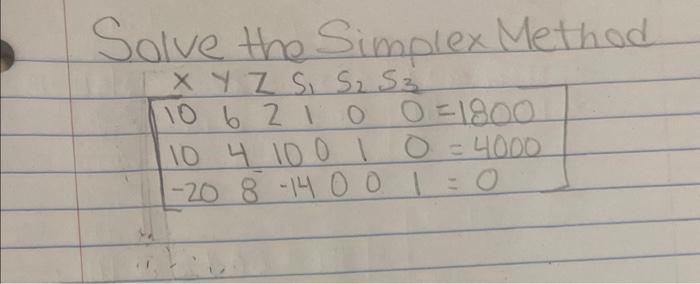 Solve the Simplex Method
X Y Z S₁ S₂ S₃
10 6 2 1 0 0 = 1800
10 4 10 0 1 0 = 4000
-20 8 -14 0 0 1 = 0